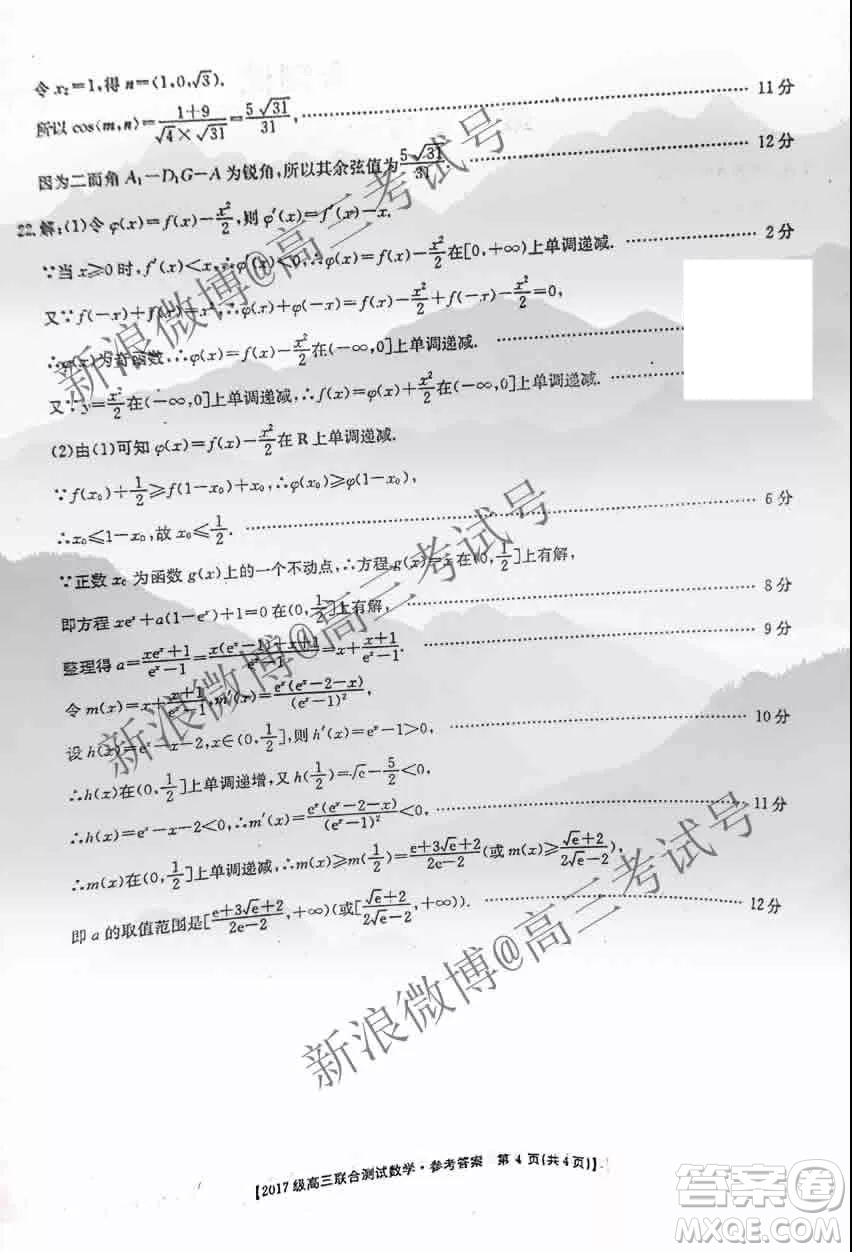 令 x₂=1,得 n=(1,0,√3).
所以 cos⟨m,n⟩=(1+9)/(√4×√31)=5√31/31, 11 分
因为二面角 A₁-D₁G-A 为锐角,所以其余弦值为 5√31/31. 12 分
22.解:(1)令 φ(x)=f(x)-x²/2,则 φ′(x)=f′(x)-x.
∵当 x≥0 时,f′(x)<x,∴φ′(x)<0,∴φ(x)=f(x)-x²/2 在[0,+∞)上单调递减. 2 分
又∵f(-x)+f(x)=x²,∴φ(x)+φ(-x)=f(x)-x²/2+f(-x)-x²/2=0,
∴φ(x)为奇函数,∴φ(x)=f(x)-x²/2 在(-∞,0]上单调递减.
又∵y=x²/2 在(-∞,0]上单调递减,∴f(x)=φ(x)+x²/2 在(-∞,0]上单调递减.
(2)由(1)可知 φ(x)=f(x)-x²/2 在 R 上单调递减.
∵f(x₀)+1/2≥f(1-x₀)+x₀,∴φ(x₀)≥φ(1-x₀),
∴x₀≤1-x₀,故 x₀≤1/2. 6 分
∵正数 x₀ 为函数 g(x)上的一个不动点,∴方程 g(x)=x 在(0,1/2]上有解,
即方程 xeˣ+a(1-eˣ)+1=0 在(0,1/2]上有解, 8 分
整理得 a=(xeˣ+1)/(eˣ-1)=(x(eˣ-1)+x+1)/(eˣ-1)=x+(x+1)/(eˣ-1). 9 分
令 m(x)=x+(x+1)/(eˣ-1),m′(x)=eˣ(eˣ-2-x)/(eˣ-1)²,
设 h(x)=eˣ-x-2,x∈(0,1/2],则 h′(x)=eˣ-1>0, 10 分
∴h(x)在(0,1/2]上单调递增,又 h(1/2)=√e-5/2<0,
∴h(x)=eˣ-x-2<0,∴m′(x)=eˣ(eˣ-2-x)/(eˣ-1)²<0, 11 分
∴m(x)在(0,1/2]上单调递减,∴m(x)≥m(1/2)=(e+3√e+2)/(2e-2)(或 m(x)≥(√e+2)/(2√e-2)),
即 a 的取值范围是[(e+3√e+2)/(2e-2),+∞)(或[(√e+2)/(2√e-2),+∞)). 12 分
【2017 级高三联合测试数学·参考答案 第 4 页(共 4 页)】
新浪微博@高三考试号
新浪微博@高三考试号
新浪微博@高三考试号
答案圈
MXQE.COM